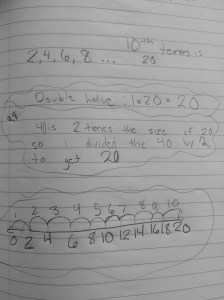 2,4,6,8 ... 10th term is
20
Double halve: 1x20 = 20
40 is 2 times the size of 20
so i divided the 40 by 2
to get 20
1 2 3 4 5 6 7 8 9 10
0 2 4 6 8 10 12 14 16 18 20